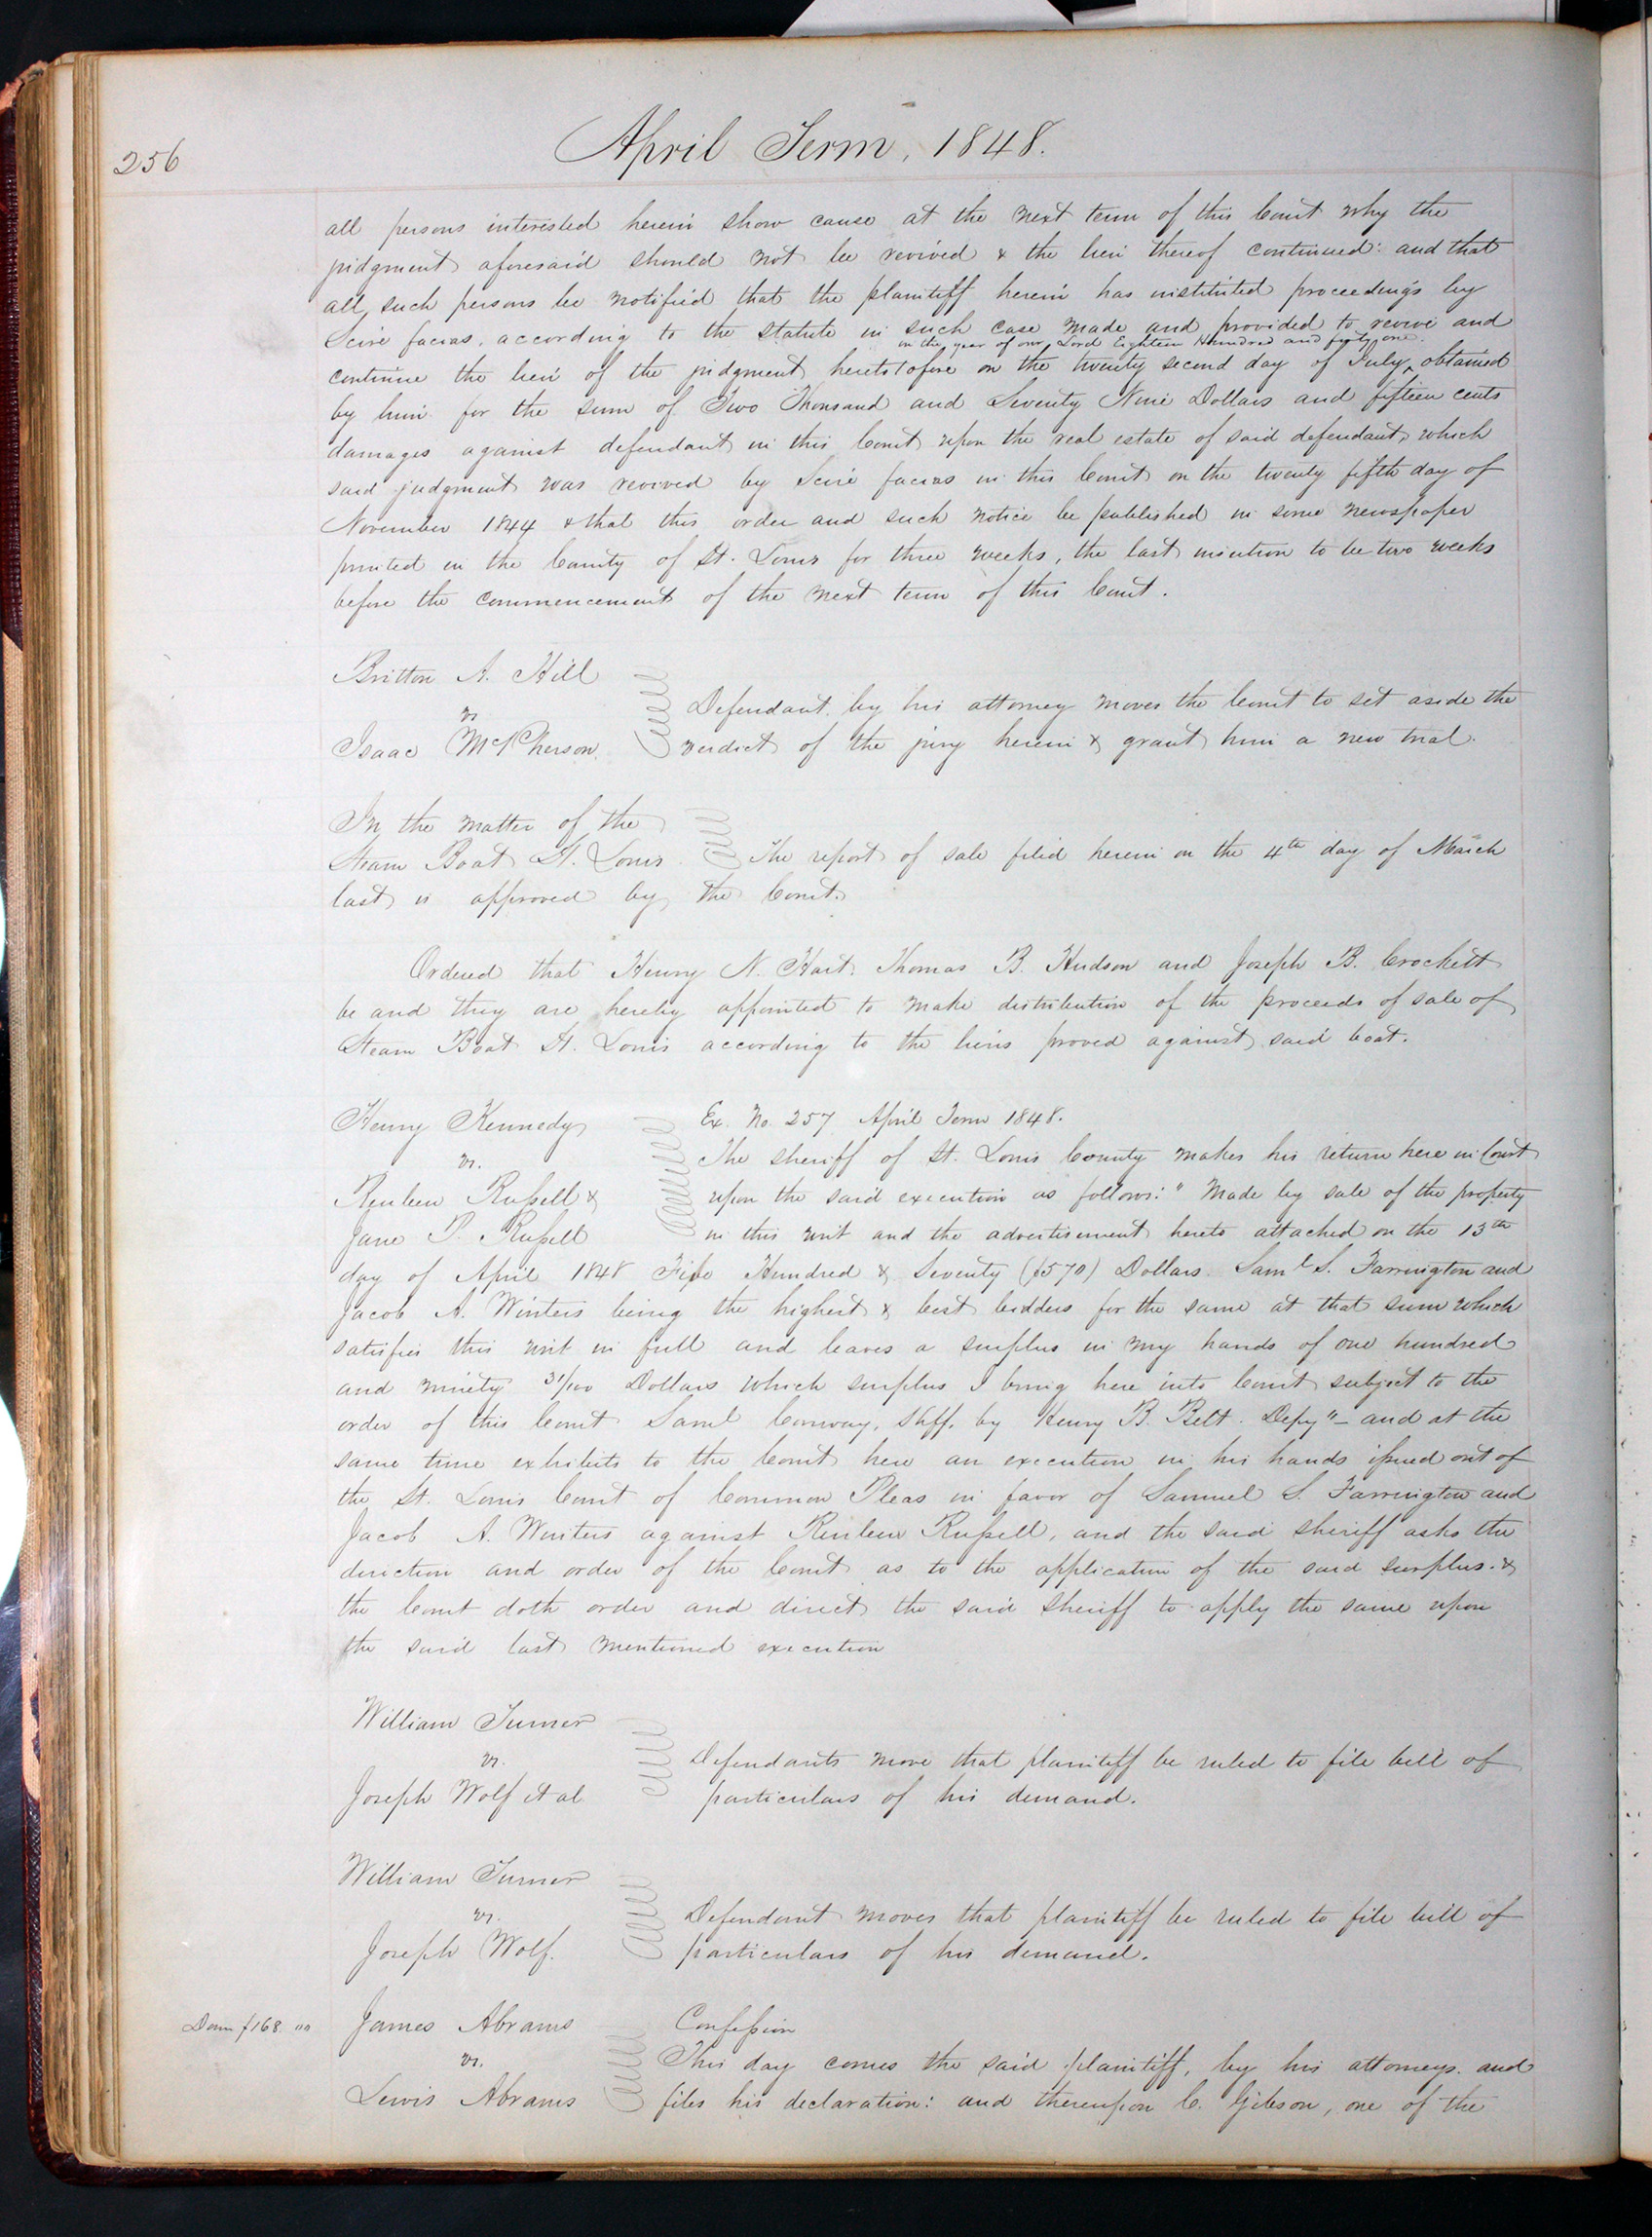 256
April Term, 1848.
all persons interested herein show cause at the next term of this Court why the
judgment aforesaid should not be revived & the lien thereof continued: and that
all such persons be notified that the plaintiff herein has instituted proceedings by
Scire facias, according to the statute in such case made and provided to revive and
in the year of our Lord Eighteen Hundred and forty one.
continue the lien of the judgment heretofore on the twenty second day of July ^ obtained
by him for the sum of Two Thousand and Seventy Nine Dollars and fifteen cents
damages against defendant in this Court upon the real estate of said defendant, which
said judgment was revived by Scire facias in this Court on the twenty fifth day of
November 1844 & that this order and such notice be published in some newspaper
printed in the County of St. Louis for three weeks, the last insertion to be two weeks
before the commencement of the next term of this Court.
Britton A. Hill
vs
Isaac McPherson.
Defendant by his attorney moves the Court to set aside the
verdict of the jury herein & grant him a new trial.
In the matter of the
Steam Boat St. Louis
The report of sale filed herein on the 4th day of March
last is approved by the Court.
Ordered that Henry N. Hart Thomas B. Hudson and Joseph B. Crockett
be and they are hereby appointed to make distribution of the proceeds of sale of
Steam Boat St. Louis according to the liens proved against said boat.
Henry Kennedy
vs.
Reuben Russell &
Jane P. Russell
Ex. No. 257 April Term 1848.
The sheriff of St. Louis County makes his return here in Court
upon the said execution as follows: "Made by sale of the property
in this writ and the advertisement hereto attached on the 13th
day of April 1848 Five Hundred & Seventy ($570) Dollars. Saml S. Farrington and
Jacob A. Winters being the highest & best bidders for the same at that sum which
satisfies this writ in full and leaves a surplus in my hands of one hundred
and ninety 31/100 Dollars which surplus I bring here into Court subject to the
order of this Court Saml Conway, Shff. by Henry B. Belt. Depy" – and at the
same time exhibits to the Court here an execution in his hands issued out of
the St. Louis Court of Common Pleas in favor of Samuel S. Farrington and
Jacob A. Winters against Reuben Russell, and the said sheriff asks the
direction and order of the Court as to the application of the said surplus. &
the Court doth order and direct the said Sheriff to apply the same upon
the said last mentioned execution
William Turner
vs.
Joseph Wolf et al
Defendants move that plaintiff be ruled to file bill of
particulars of his demand.
William Turner
vs.
Joseph Wolf.
Defendant moves that plaintiff be ruled to file bill of
particulars of his demand.
Dam $168.00
James Abrams
vs.
Lewis Abrams
Confession
This day comes the said plaintiff, by his attorneys. and
files his declaration: and thereupon C. Gibson, one of the